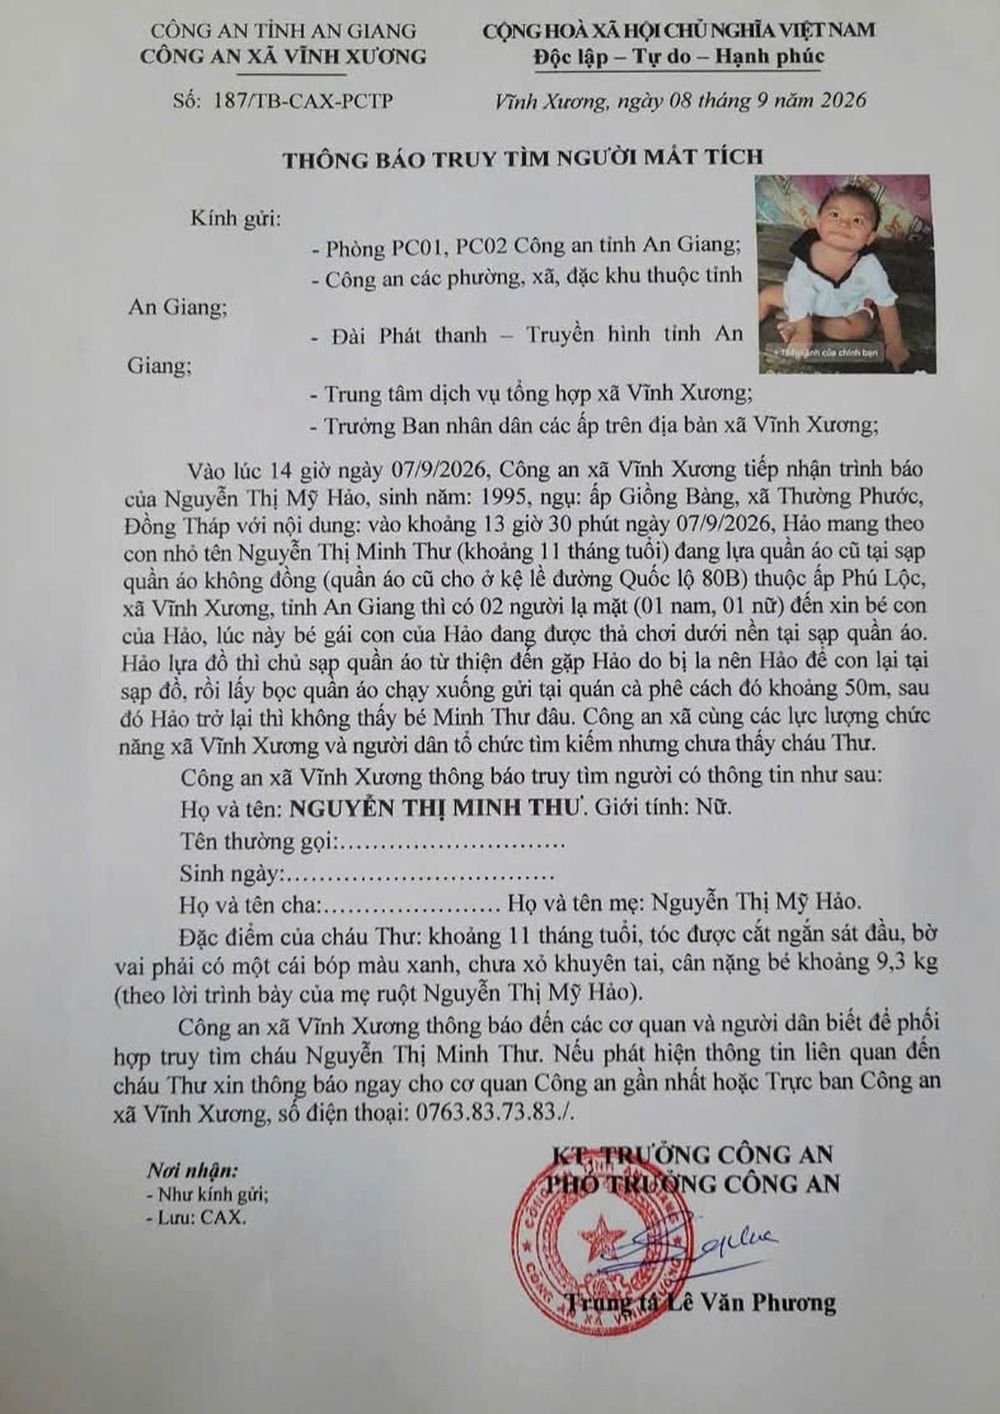 CÔNG AN TỈNH AN GIANG
CÔNG AN XÃ VĨNH XƯƠNG
Số: 187/TB-CAX-PCTP
CỘNG HOÀ XÃ HỘI CHỦ NGHĨA VIỆT NAM
Độc lập – Tự do – Hạnh phúc
Vĩnh Xương, ngày 08 tháng 9 năm 2026
THÔNG BÁO TRUY TÌM NGƯỜI MẤT TÍCH
Kính gửi:
- Phòng PC01, PC02 Công an tỉnh An Giang;
- Công an các phường, xã, đặc khu thuộc tỉnh
An Giang;
- Đài Phát thanh – Truyền hình tỉnh An
Giang;
ảnh của chính bạn
- Trung tâm dịch vụ tổng hợp xã Vĩnh Xương;
- Trưởng Ban nhân dân các ấp trên địa bàn xã Vĩnh Xương;
Vào lúc 14 giờ ngày 07/9/2026, Công an xã Vĩnh Xương tiếp nhận trình báo
của Nguyễn Thị Mỹ Hảo, sinh năm: 1995, ngụ: ấp Giồng Bàng, xã Thường Phước,
Đồng Tháp với nội dung: vào khoảng 13 giờ 30 phút ngày 07/9/2026, Hảo mang theo
con nhỏ tên Nguyễn Thị Minh Thư (khoảng 11 tháng tuổi) đang lựa quần áo cũ tại sạp
quần áo không đồng (quần áo cũ cho ở kệ lề đường Quốc lộ 80B) thuộc ấp Phú Lộc,
xã Vĩnh Xương, tỉnh An Giang thì có 02 người lạ mặt (01 nam, 01 nữ) đến xin bé con
của Hảo, lúc này bé gái con của Hảo đang được thả chơi dưới nền tại sạp quần áo.
Hảo lựa đồ thì chủ sạp quần áo từ thiện đến gặp Hảo do bị la nên Hảo để con lại tại
sạp đồ, rồi lấy bọc quần áo chạy xuống gửi tại quán cà phê cách đó khoảng 50m, sau
đó Hảo trở lại thì không thấy bé Minh Thư đâu. Công an xã cùng các lực lượng chức
năng xã Vĩnh Xương và người dân tổ chức tìm kiếm nhưng chưa thấy cháu Thư.
Công an xã Vĩnh Xương thông báo truy tìm người có thông tin như sau:
Họ và tên: NGUYỄN THỊ MINH THƯ. Giới tính: Nữ.
Tên thường gọi:..............................
Sinh ngày:...................................
Họ và tên cha:....................... Họ và tên mẹ: Nguyễn Thị Mỹ Hảo.
Đặc điểm của cháu Thư: khoảng 11 tháng tuổi, tóc được cắt ngắn sát đầu, bờ
vai phải có một cái bóp màu xanh, chưa xỏ khuyên tai, cân nặng bé khoảng 9,3 kg
(theo lời trình bày của mẹ ruột Nguyễn Thị Mỹ Hảo).
Công an xã Vĩnh Xương thông báo đến các cơ quan và người dân biết để phối
hợp truy tìm cháu Nguyễn Thị Minh Thư. Nếu phát hiện thông tin liên quan đến
cháu Thư xin thông báo ngay cho cơ quan Công an gần nhất hoặc Trực ban Công an
xã Vĩnh Xương, số điện thoại: 0763.83.73.83./.
Nơi nhận:
- Như kính gửi;
- Lưu: CAX.
KT. TRƯỞNG CÔNG AN
PHÓ TRƯỞNG CÔNG AN
Trung tá Lê Văn Phương